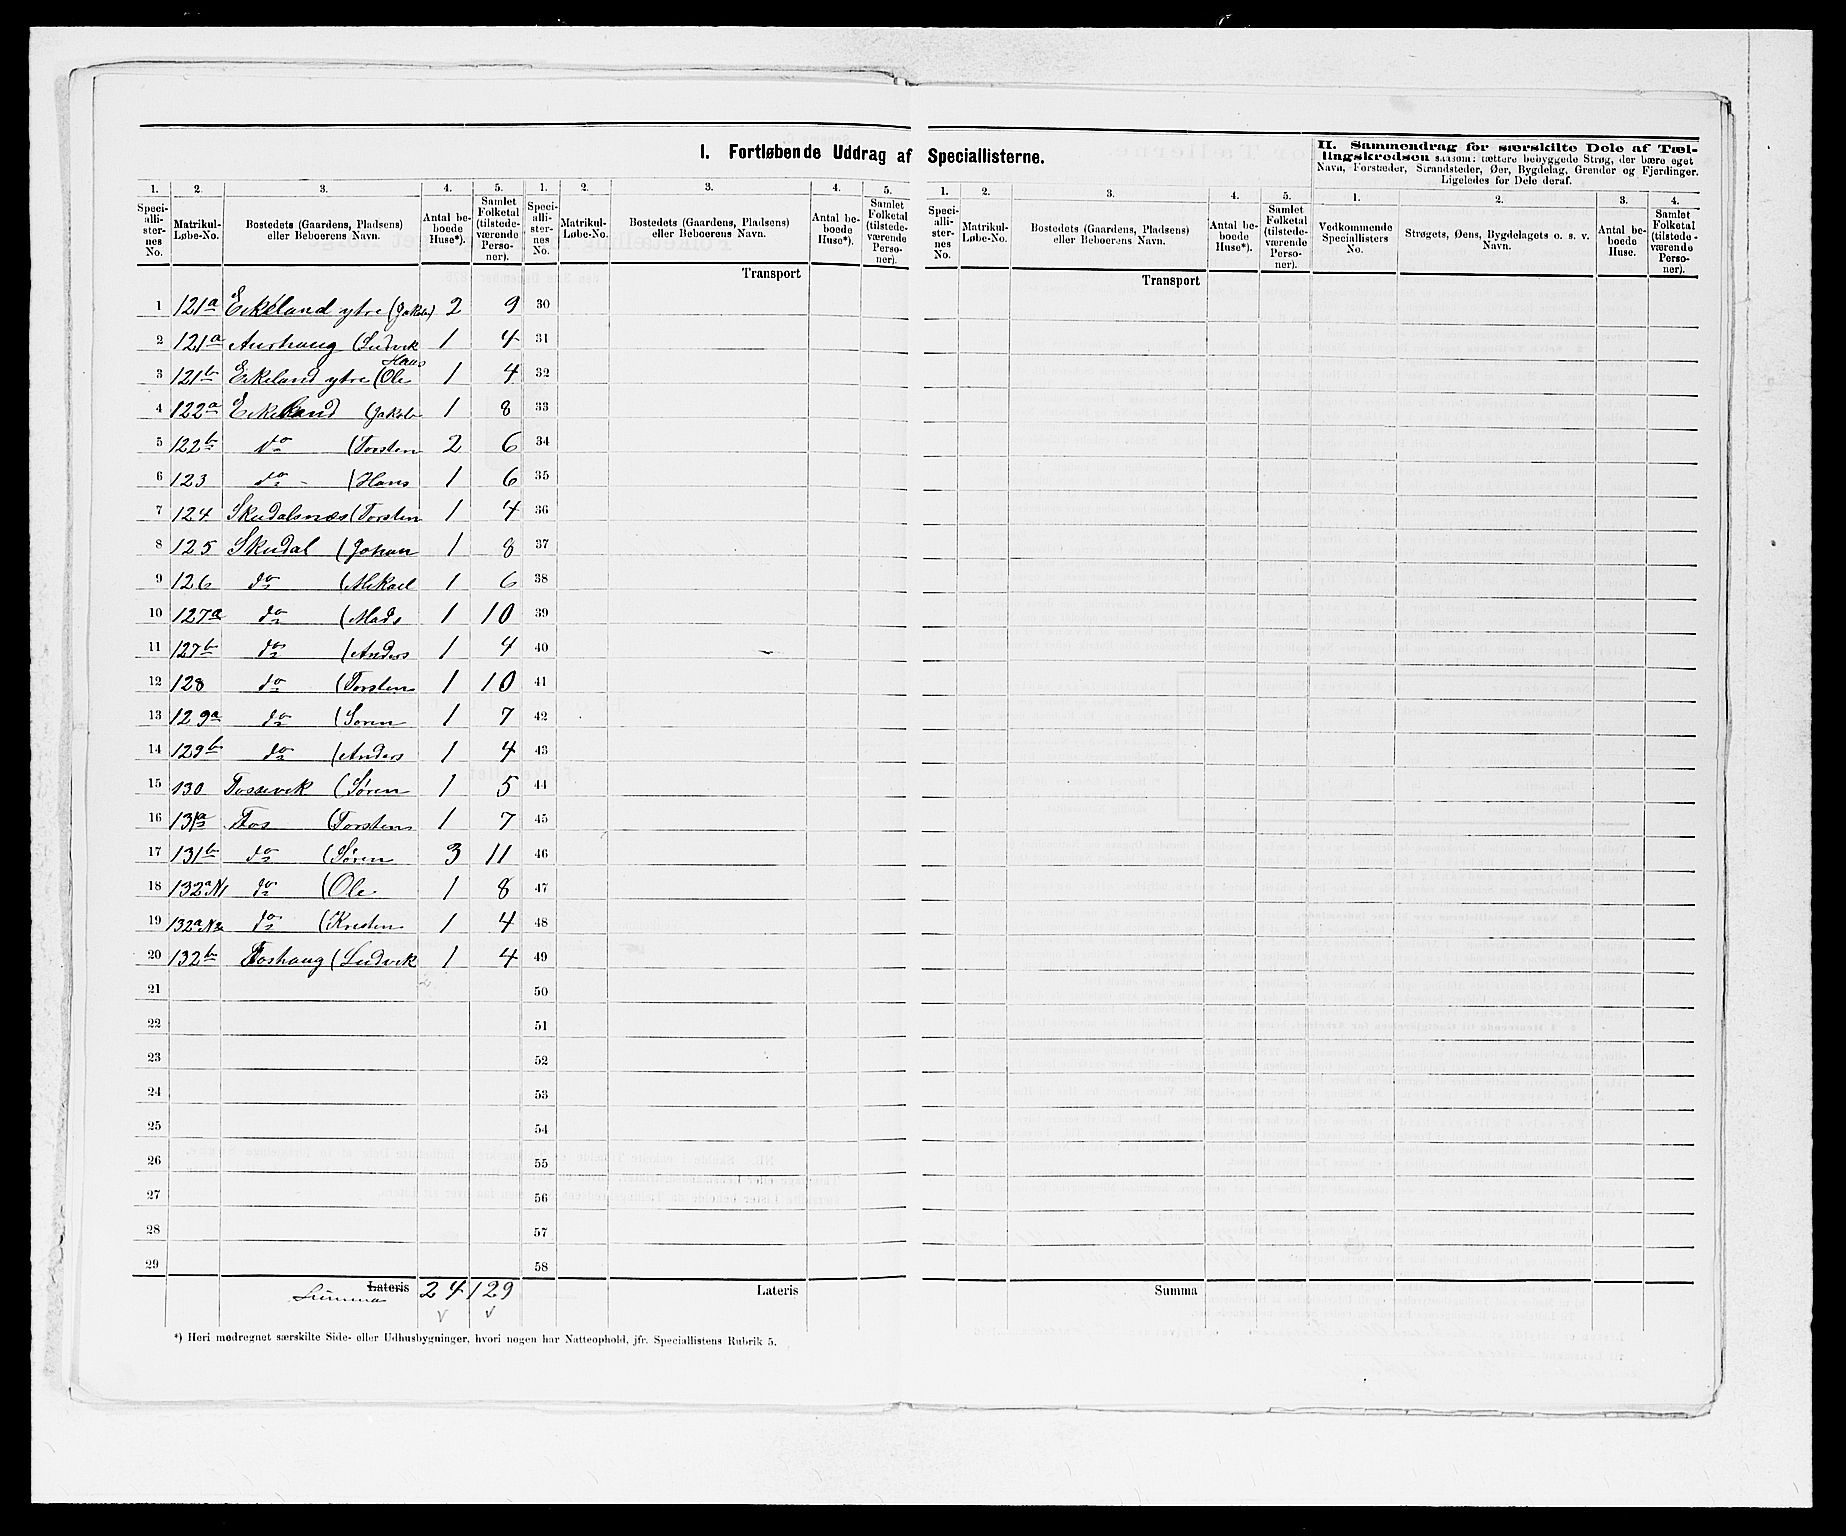 I. Fortløbende Uddrag af Speciallisterne.
II. Sammendrag for særskilte Dele af Tæl-
lingskredsen saasom: tættere bebyggede Strøg, der bære eget
Navn, Forstæder, Strandsteder, Øer, Bygdelag, Grender og Fjerdinger.
Ligeledes for Dele deraf.
1. 2. 3. 4. 5. 1. 2. 3. 4. 5. 1. 2. 3. 4. 5. 1. 2. 3. 4.
Speciallisternes No. Matrikul-Løbe-No. Bostedets (Gaardens, Pladsens) eller Beboerens Navn. Antal beboede Huse*). Samlet Folketal (tilstedeværende Personer).
Speciallisternes No. Matrikul-Løbe-No. Bostedets (Gaardens, Pladsens) eller Beboerens Navn. Antal beboede Huse*). Samlet Folketal (tilstedeværende Personer).
Speciallisternes No. Matrikul-Løbe-No. Bostedets (Gaardens, Pladsens) eller Beboerens Navn. Antal beboede Huse*). Samlet Folketal (tilstedeværende Personer).
Vedkommende Speciallisters No. Strøgets, Øens, Bygdelagets o. s. v. Navn. Antal beboede Huse. Samlet Folketal (tilstedeværende Personer).
Transport Transport
1 121a Eikeland ytre (Jakob) 2 9 30
2 121a Aurhaug (Ludvik 1 4 31
3 121b Eikeland ytre (Ole Hans 1 4 32
4 122a Eikeland (Jakob 1 8 33
5 122b do (Torsten 2 6 34
6 123 do - (Hans 1 6 35
7 124 Skudalsnæs (Torsten 1 4 36
8 125 Skudal (Johan 1 8 37
9 126 do (Mikael 1 6 38
10 127a do (Mads 1 10 39
11 127b do (Anders 1 4 40
12 128 do (Torsten 1 10 41
13 129a do (Søren 1 7 42
14 129b do (Anders 1 4 43
15 130 Fossevik (Søren 1 5 44
16 131a Fos (Torsten 1 7 45
17 131b do (Søren 3 11 46
18 132a N1 do (Ole 1 8 47
19 132a N2 do (Kristen 1 4 48
20 132b Foshaug (Ludvik 1 4 49
21 50
22 51
23 52
24 53
25 54
26 55
27 56
28 57
29 58
Lateris Summa 24 129 Lateris Summa
*) Heri medregnet særskilte Side- eller Udhusbygninger, hvori nogen har Natteophold, jfr. Speciallistens Rubrik 5.